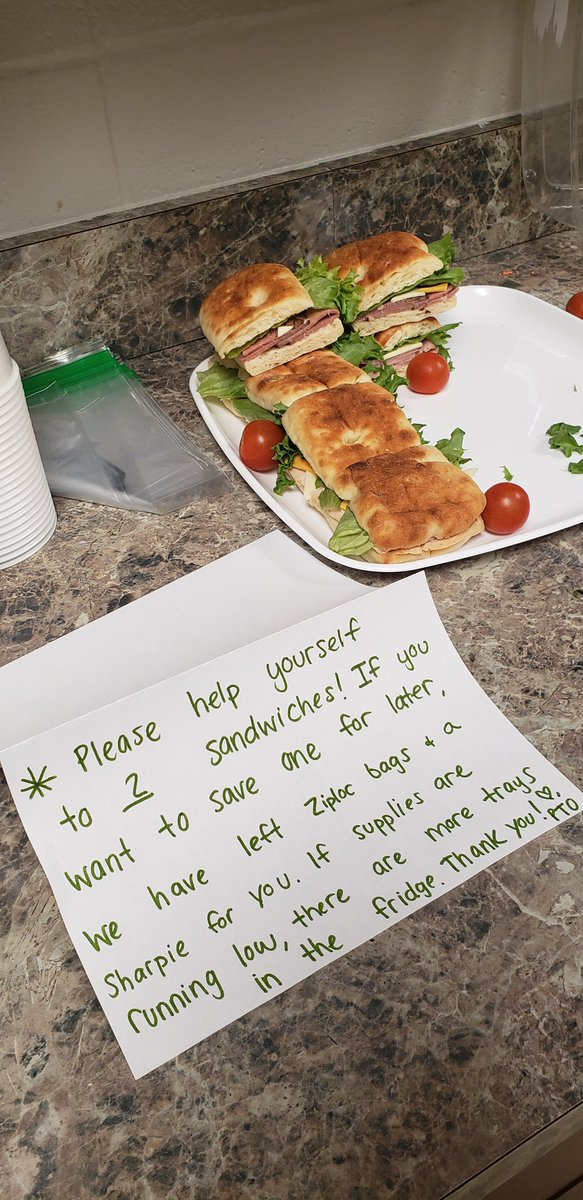 * Please help yourself
to 2 sandwiches! If you
want to save one for later,
we have left Ziploc bags + a
Sharpie for you. If supplies are
running low, there are more trays
in the fridge. Thank you! ♡, PTO